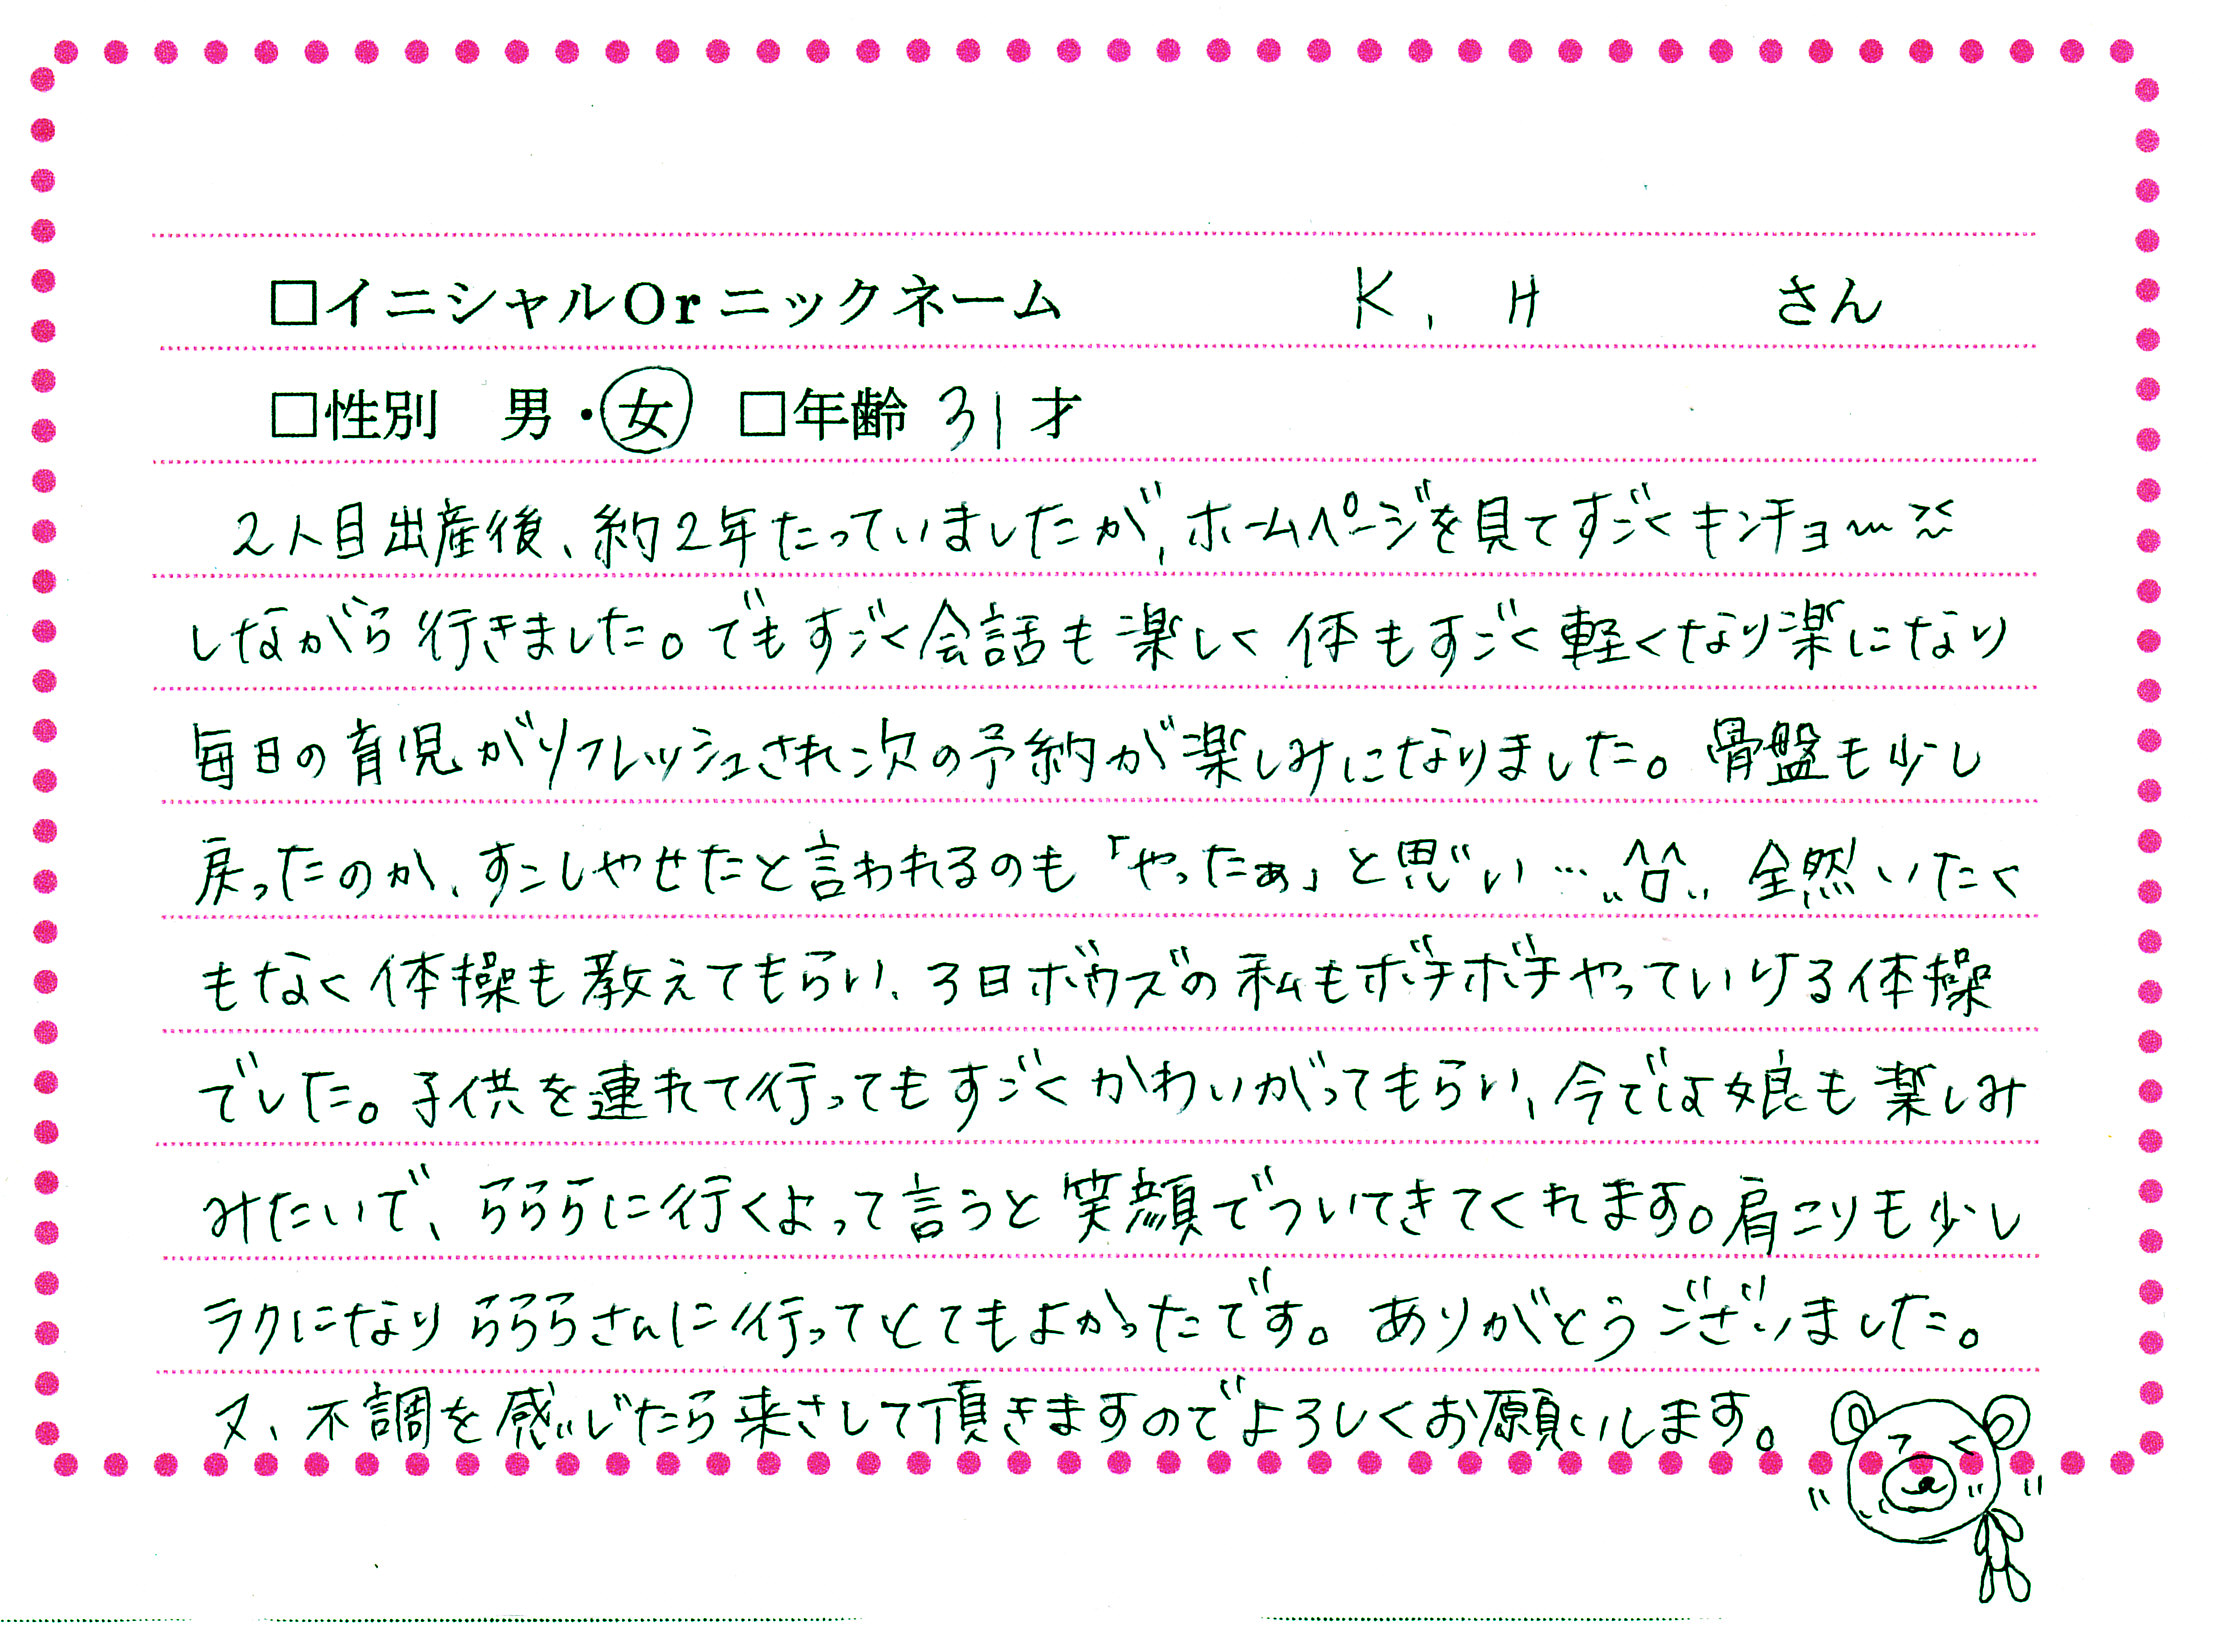 □イニシャルOrニックネーム K, H さん
□性別 男・女 □年齢 31才
2人目出産後、約2年たっていましたが、ホームページを見てすごくキンチョ〜
しながら行きました。でもすごく会話も楽しく体もすごく軽くなり楽になり
毎日の育児がリフレッシュされ次の予約が楽しみになりました。骨盤も少し
戻ったのか、すこしやせたと言われるのも「やったぁ」と思い… 全然いたく
もなく体操も教えてもらい、3日ボウズの私もボチボチやっていける体操
でした。子供を連れて行ってもすごくかわいがってもらい、今では娘も楽しみ
みたいで、らららに行くよって言うと笑顔でついてきてくれます。肩こりも少し
ラクになりらららさんに行ってとてもよかったです。ありがとうございました。
又、不調を感じたら来さして頂きますのでよろしくお願いします。